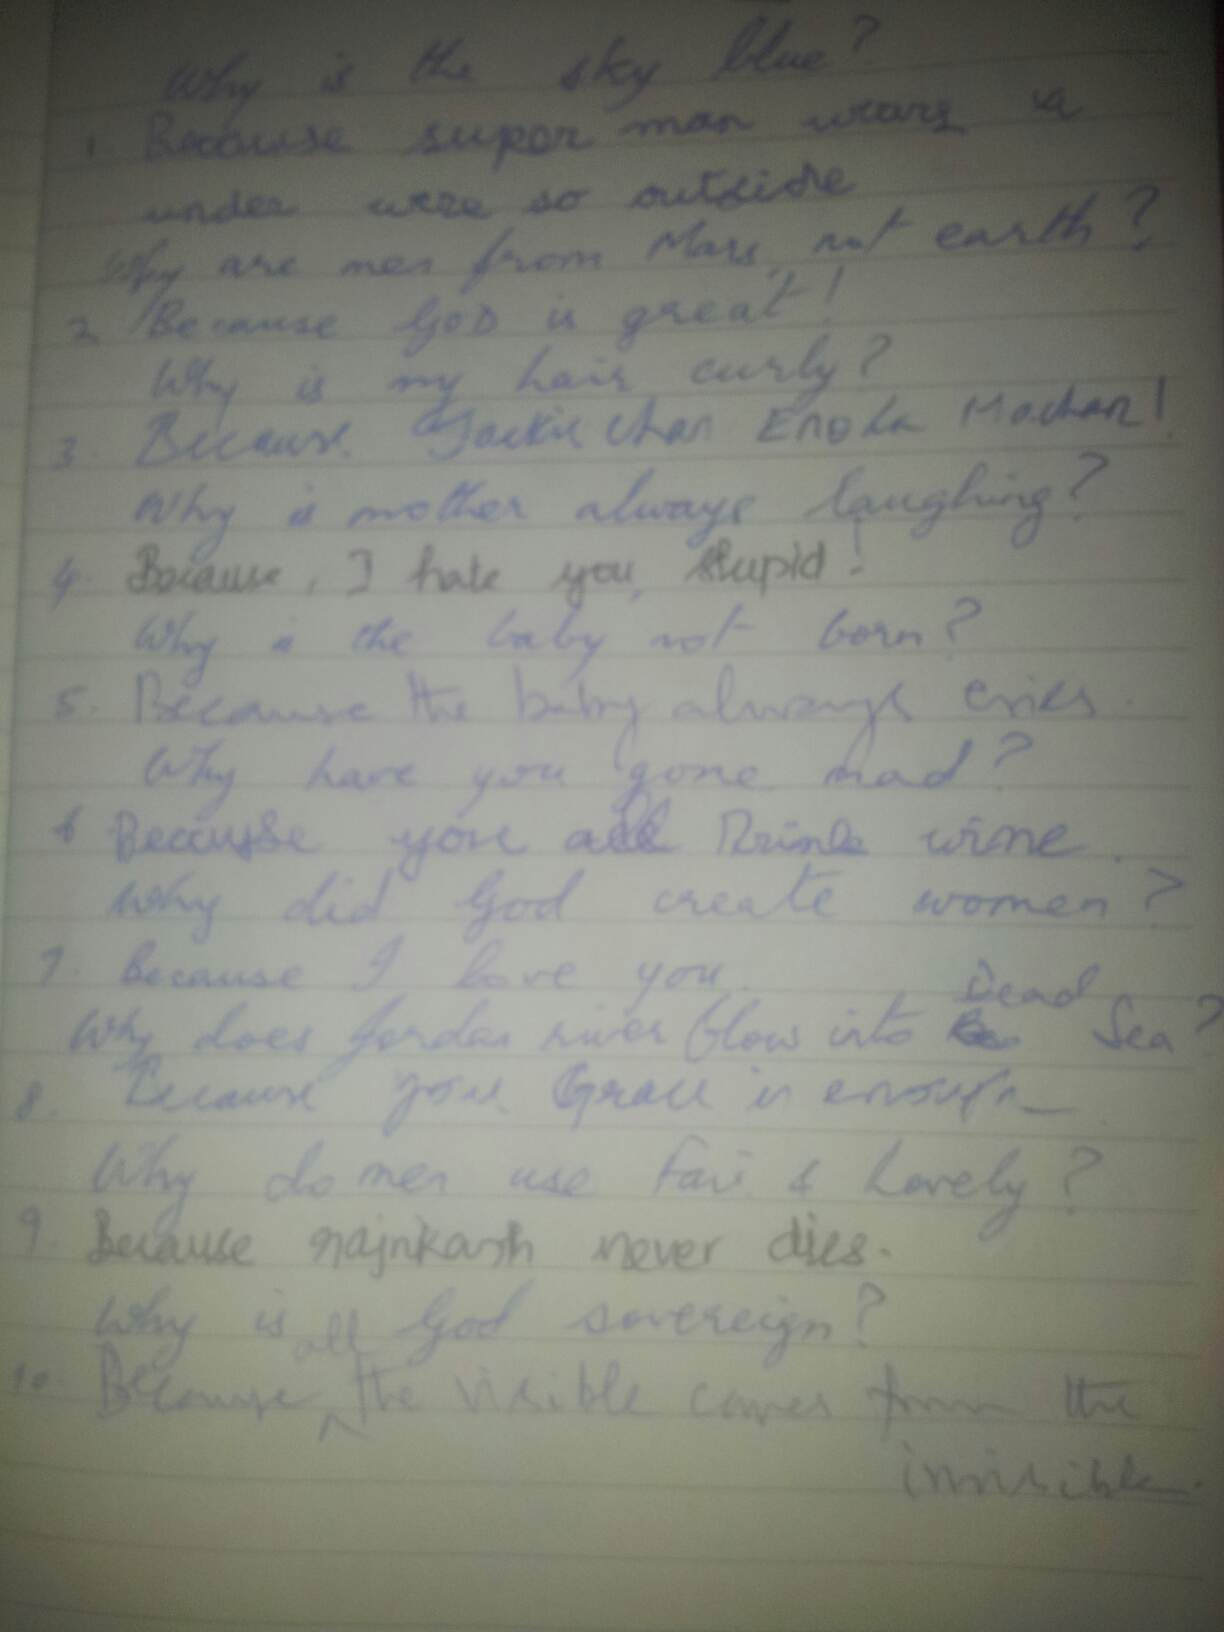 Why is the sky blue?
1. Because super man wears a
under were so outside
Why are men from Mars, not earth?
2. Because God is great!
Why is my hair curly?
3. Because Jackie chan Machan!
Why is mother always laughing?
4. Because, I hate you, stupid!
Why is the baby not born?
5. Because the baby always cries.
Why have you gone mad?
6 Because you all Drink wine.
Why did God create women?
7. Because I love you.
Dead
Why does Jordan river flow into Sea?
8. Because your Grace is enough
Why do men use Fair & Lovely?
9. Because rajnikanth never dies.
Why is God sovereign?
all
10. Because ^ the visible comes from the
invisible.